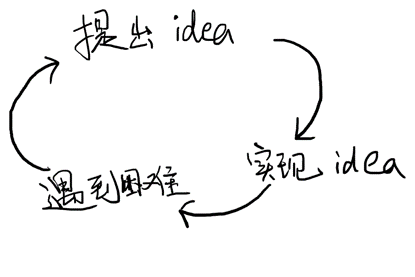 提出 idea
实现 idea
遇到困难